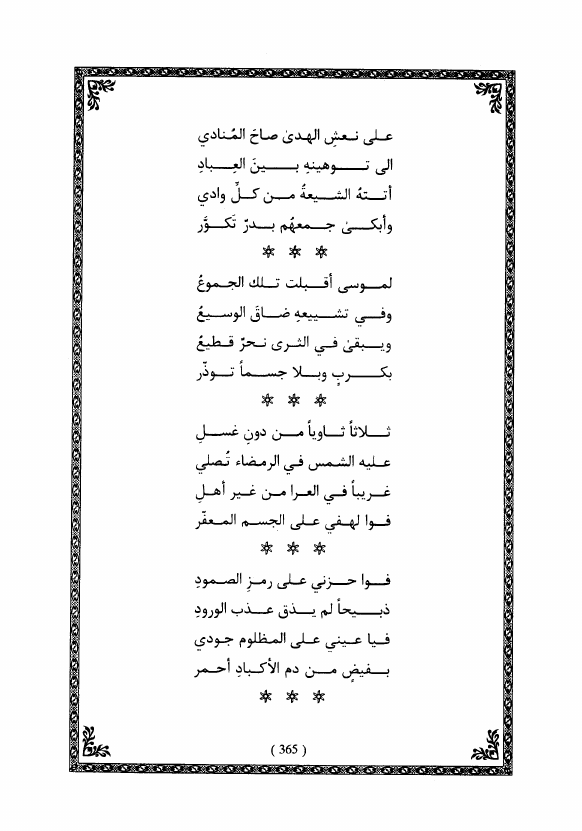 على نعشِ الهدىٰ صاحَ المُنادي
الى توهينهِ بينَ العِبادِ
أتتهُ الشيعةُ من كلِّ وادي
وأبكىٰ جمعهُم بدرٌ تَكوَّر
* * *
لموسى أقبلت تلك الجموعُ
وفي تشييعهِ ضاقَ الوسيعُ
ويبقىٰ في الثرى نحرٌ قطيعُ
بكربٍ وبلا جسماً توذّر
* * *
ثلاثاً ثاوياً من دونِ غسلِ
عليه الشمس في الرمضاء تُصلي
غريباً في العرا من غير أهلِ
فوا لهفي على الجسم المعفّر
* * *
فوا حزني على رمزِ الصمودِ
ذبيحاً لم يذق عذب الورودِ
فيا عيني على المظلوم جودي
بفيضٍ من دم الأكبادِ أحمر
* * *
( 365 )